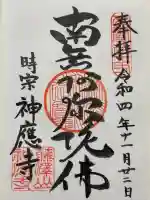 奉拝
令和四年十一月廿二日
南無阿弥陀佛
時宗
神應寺